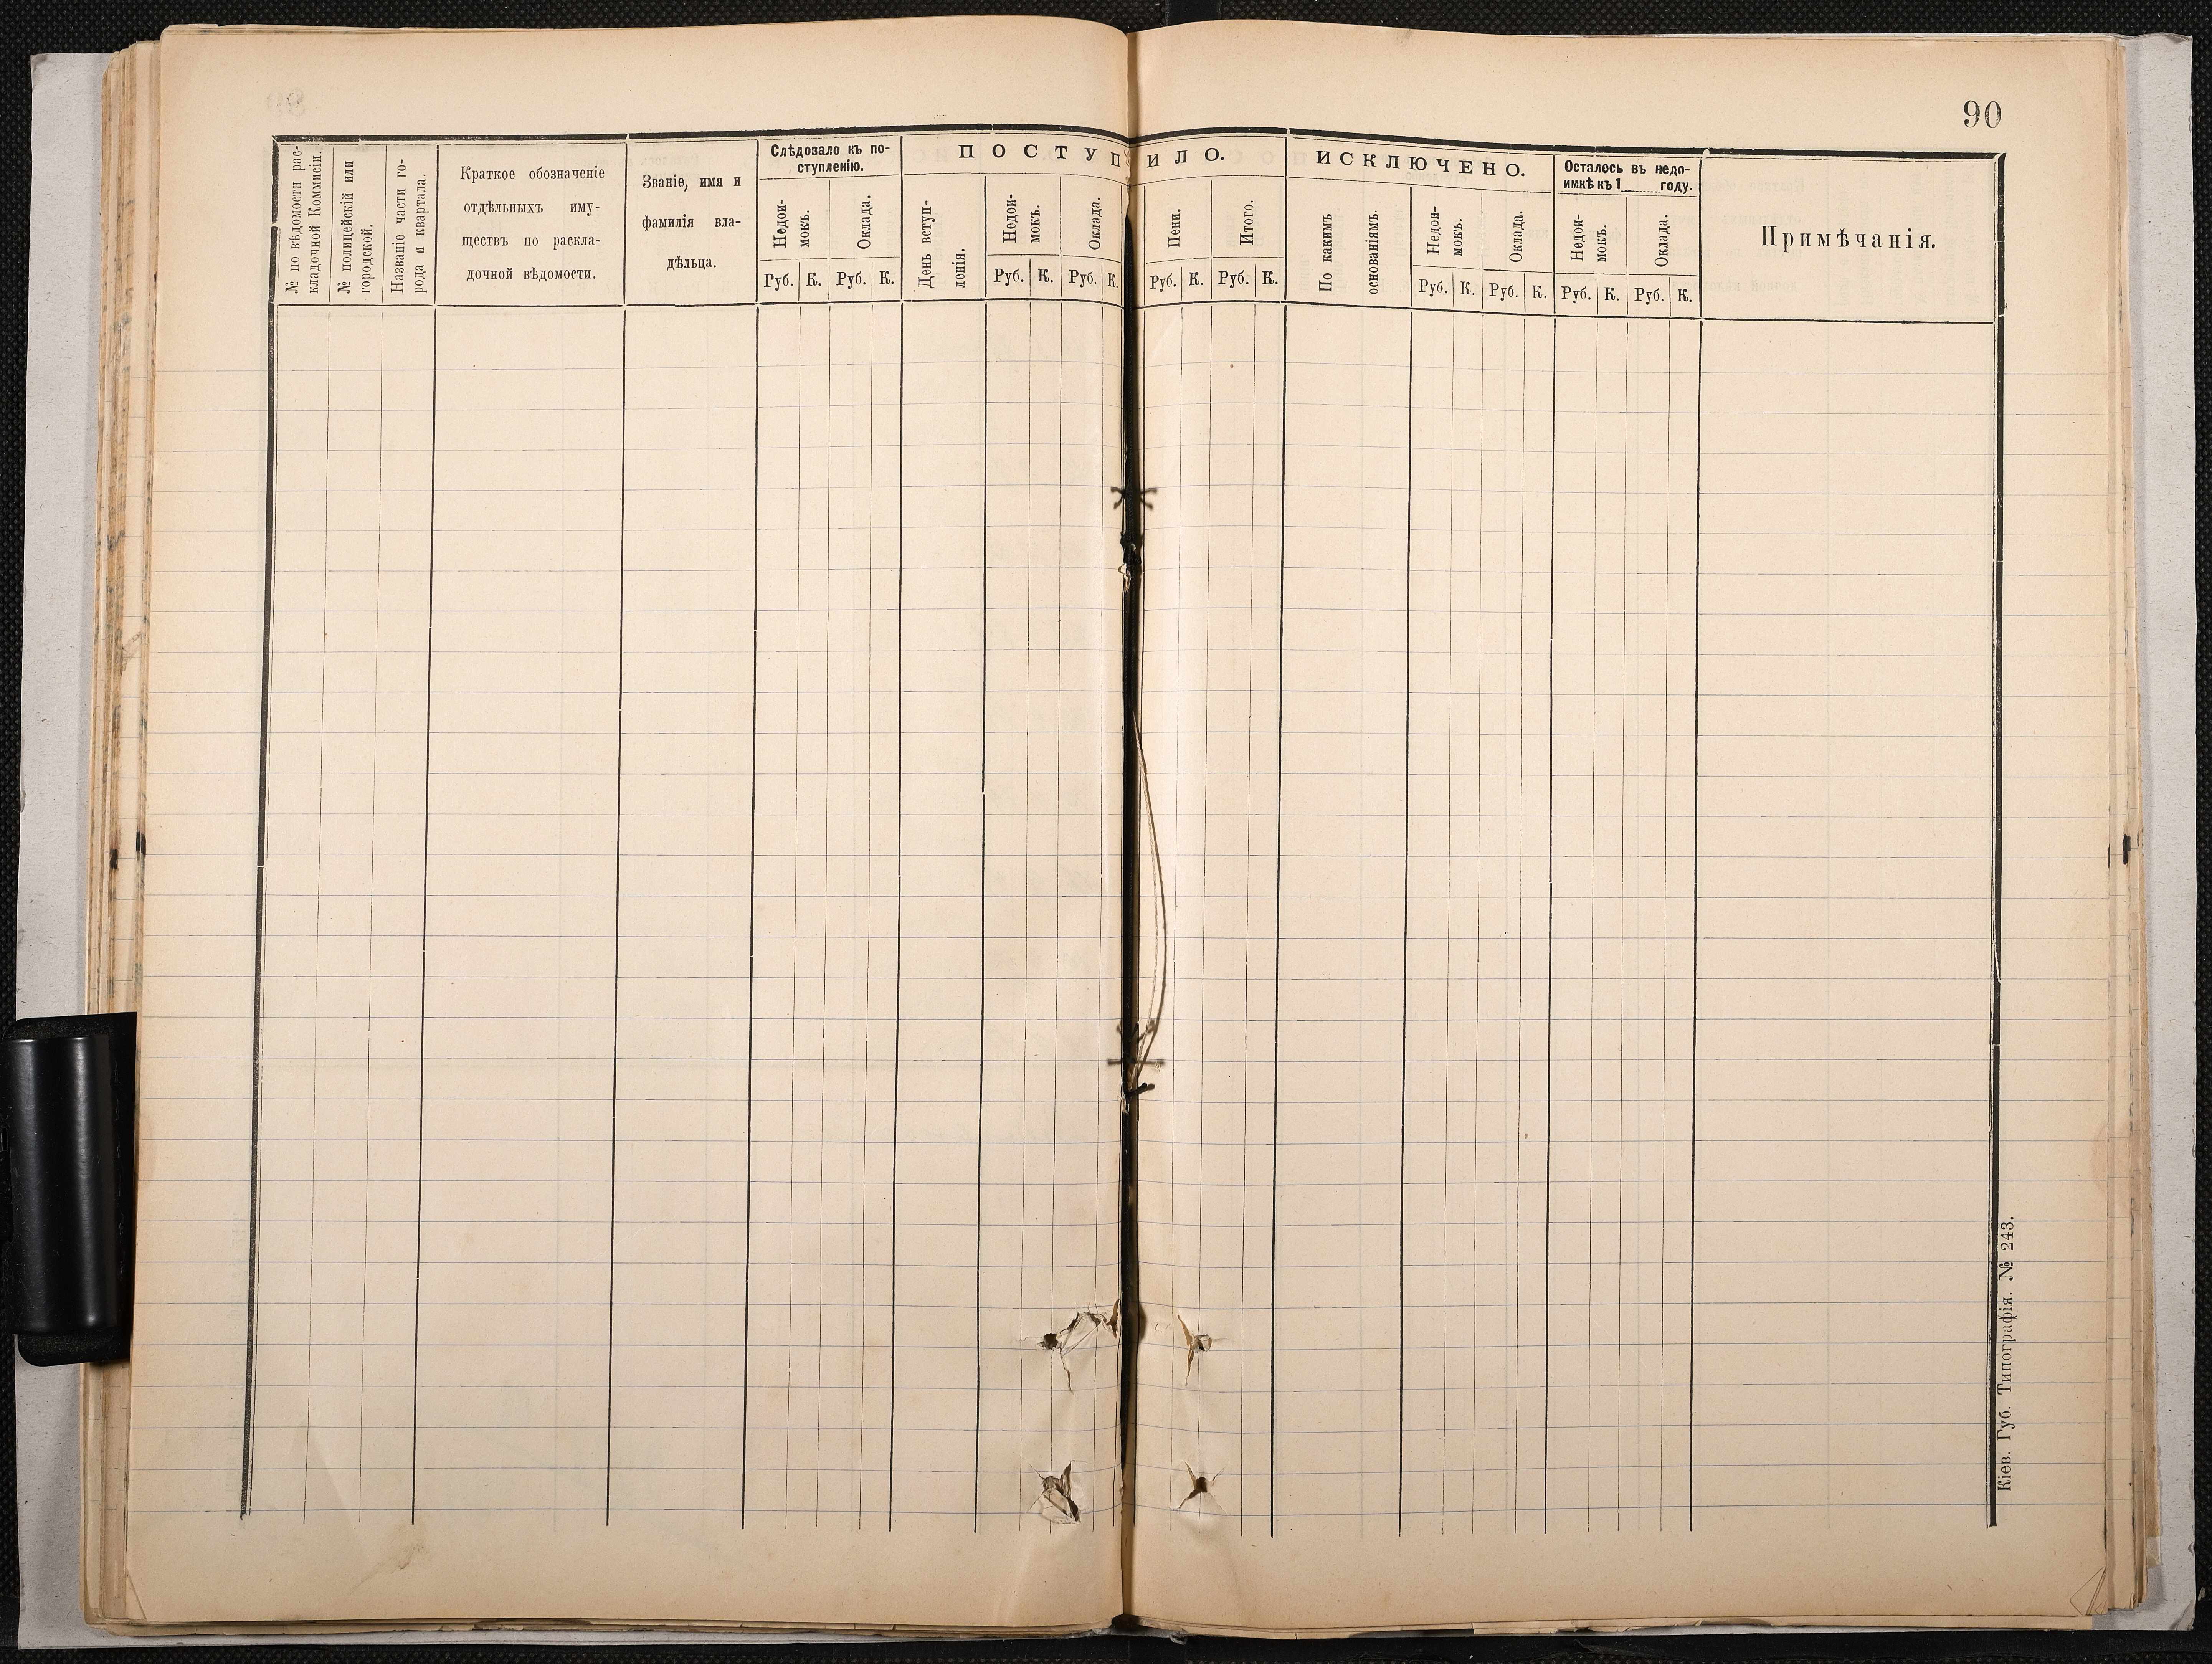 90
№ по вѣдомости рас-
кладочной Коммисіи.
№ полицейскій или
городской.
Названіе части го-
рода и квартала.
Краткое обозначеніе
отдѣльныхъ иму-
ществъ по раскла-
дочной вѣдомости.
Званіе, имя и
фамилія вла-
дѣльца.
Слѣдовало къ по-
ступленію.
Недои-
мокъ.
Оклада.
Руб. К. Руб. К.
ПОСТУПИЛО.
День вступ-
ленія.
Недои-
мокъ.
Оклада.
Пени.
Итого.
Руб. К. Руб. К. Руб. К. Руб. К.
ИСКЛЮЧЕНО.
По какимъ
основаніямъ.
Недои-
мокъ.
Оклада.
Руб. К. Руб. К.
Осталось въ недо-
имкѣ къ 1 году.
Недои-
мокъ.
Оклада.
Руб. К. Руб. К.
Примѣчанія.
Кіев. Губ. Типографія. № 243.